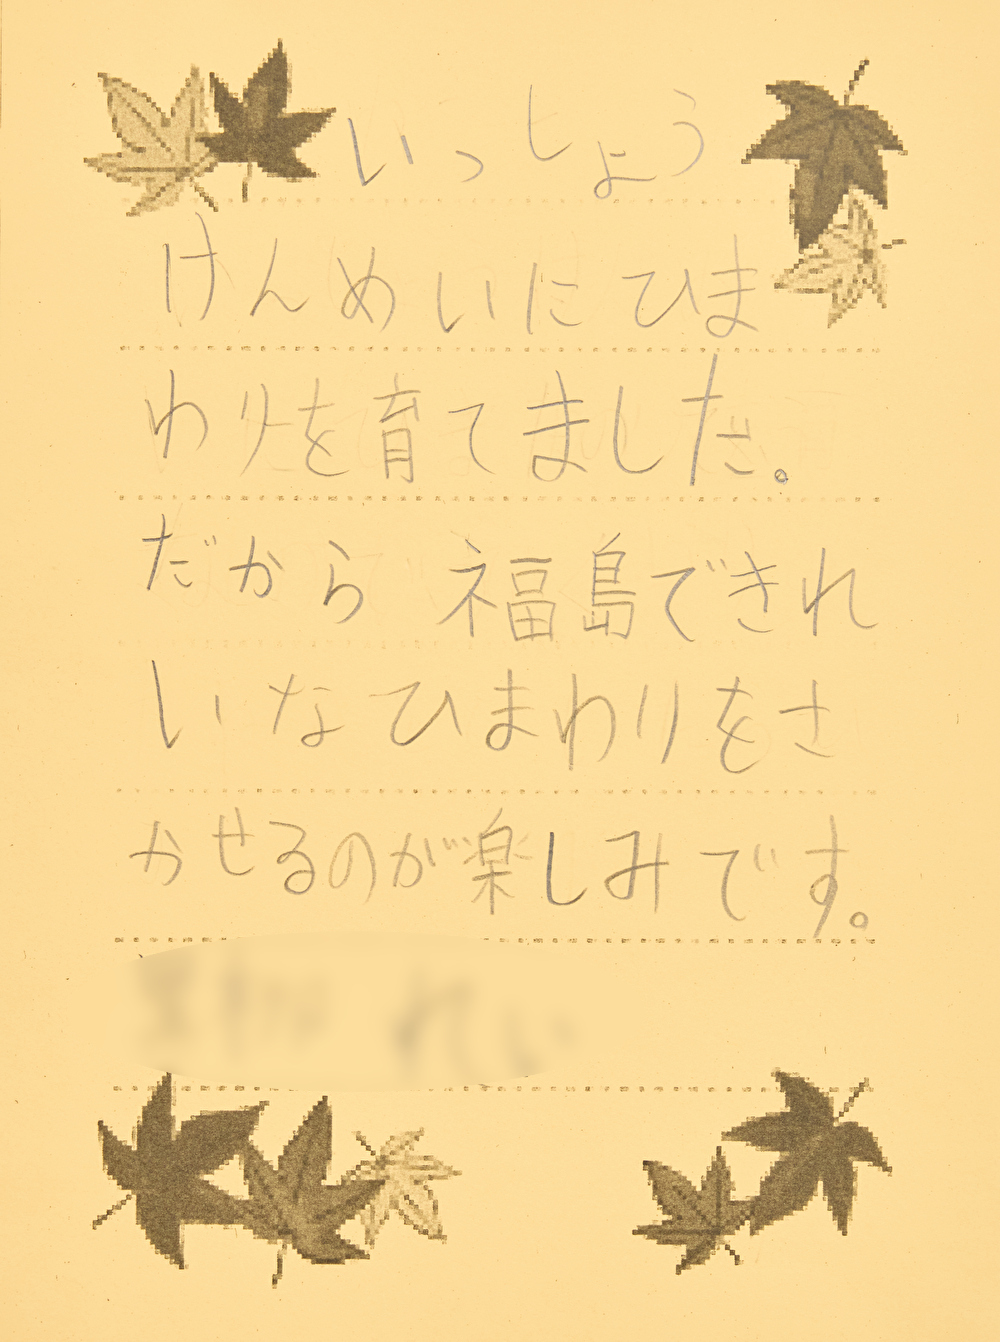 いっしょう
けんめいにひま
わりを育てました。
だから福島できれ
いなひまわりをさ
かせるのが楽しみです。